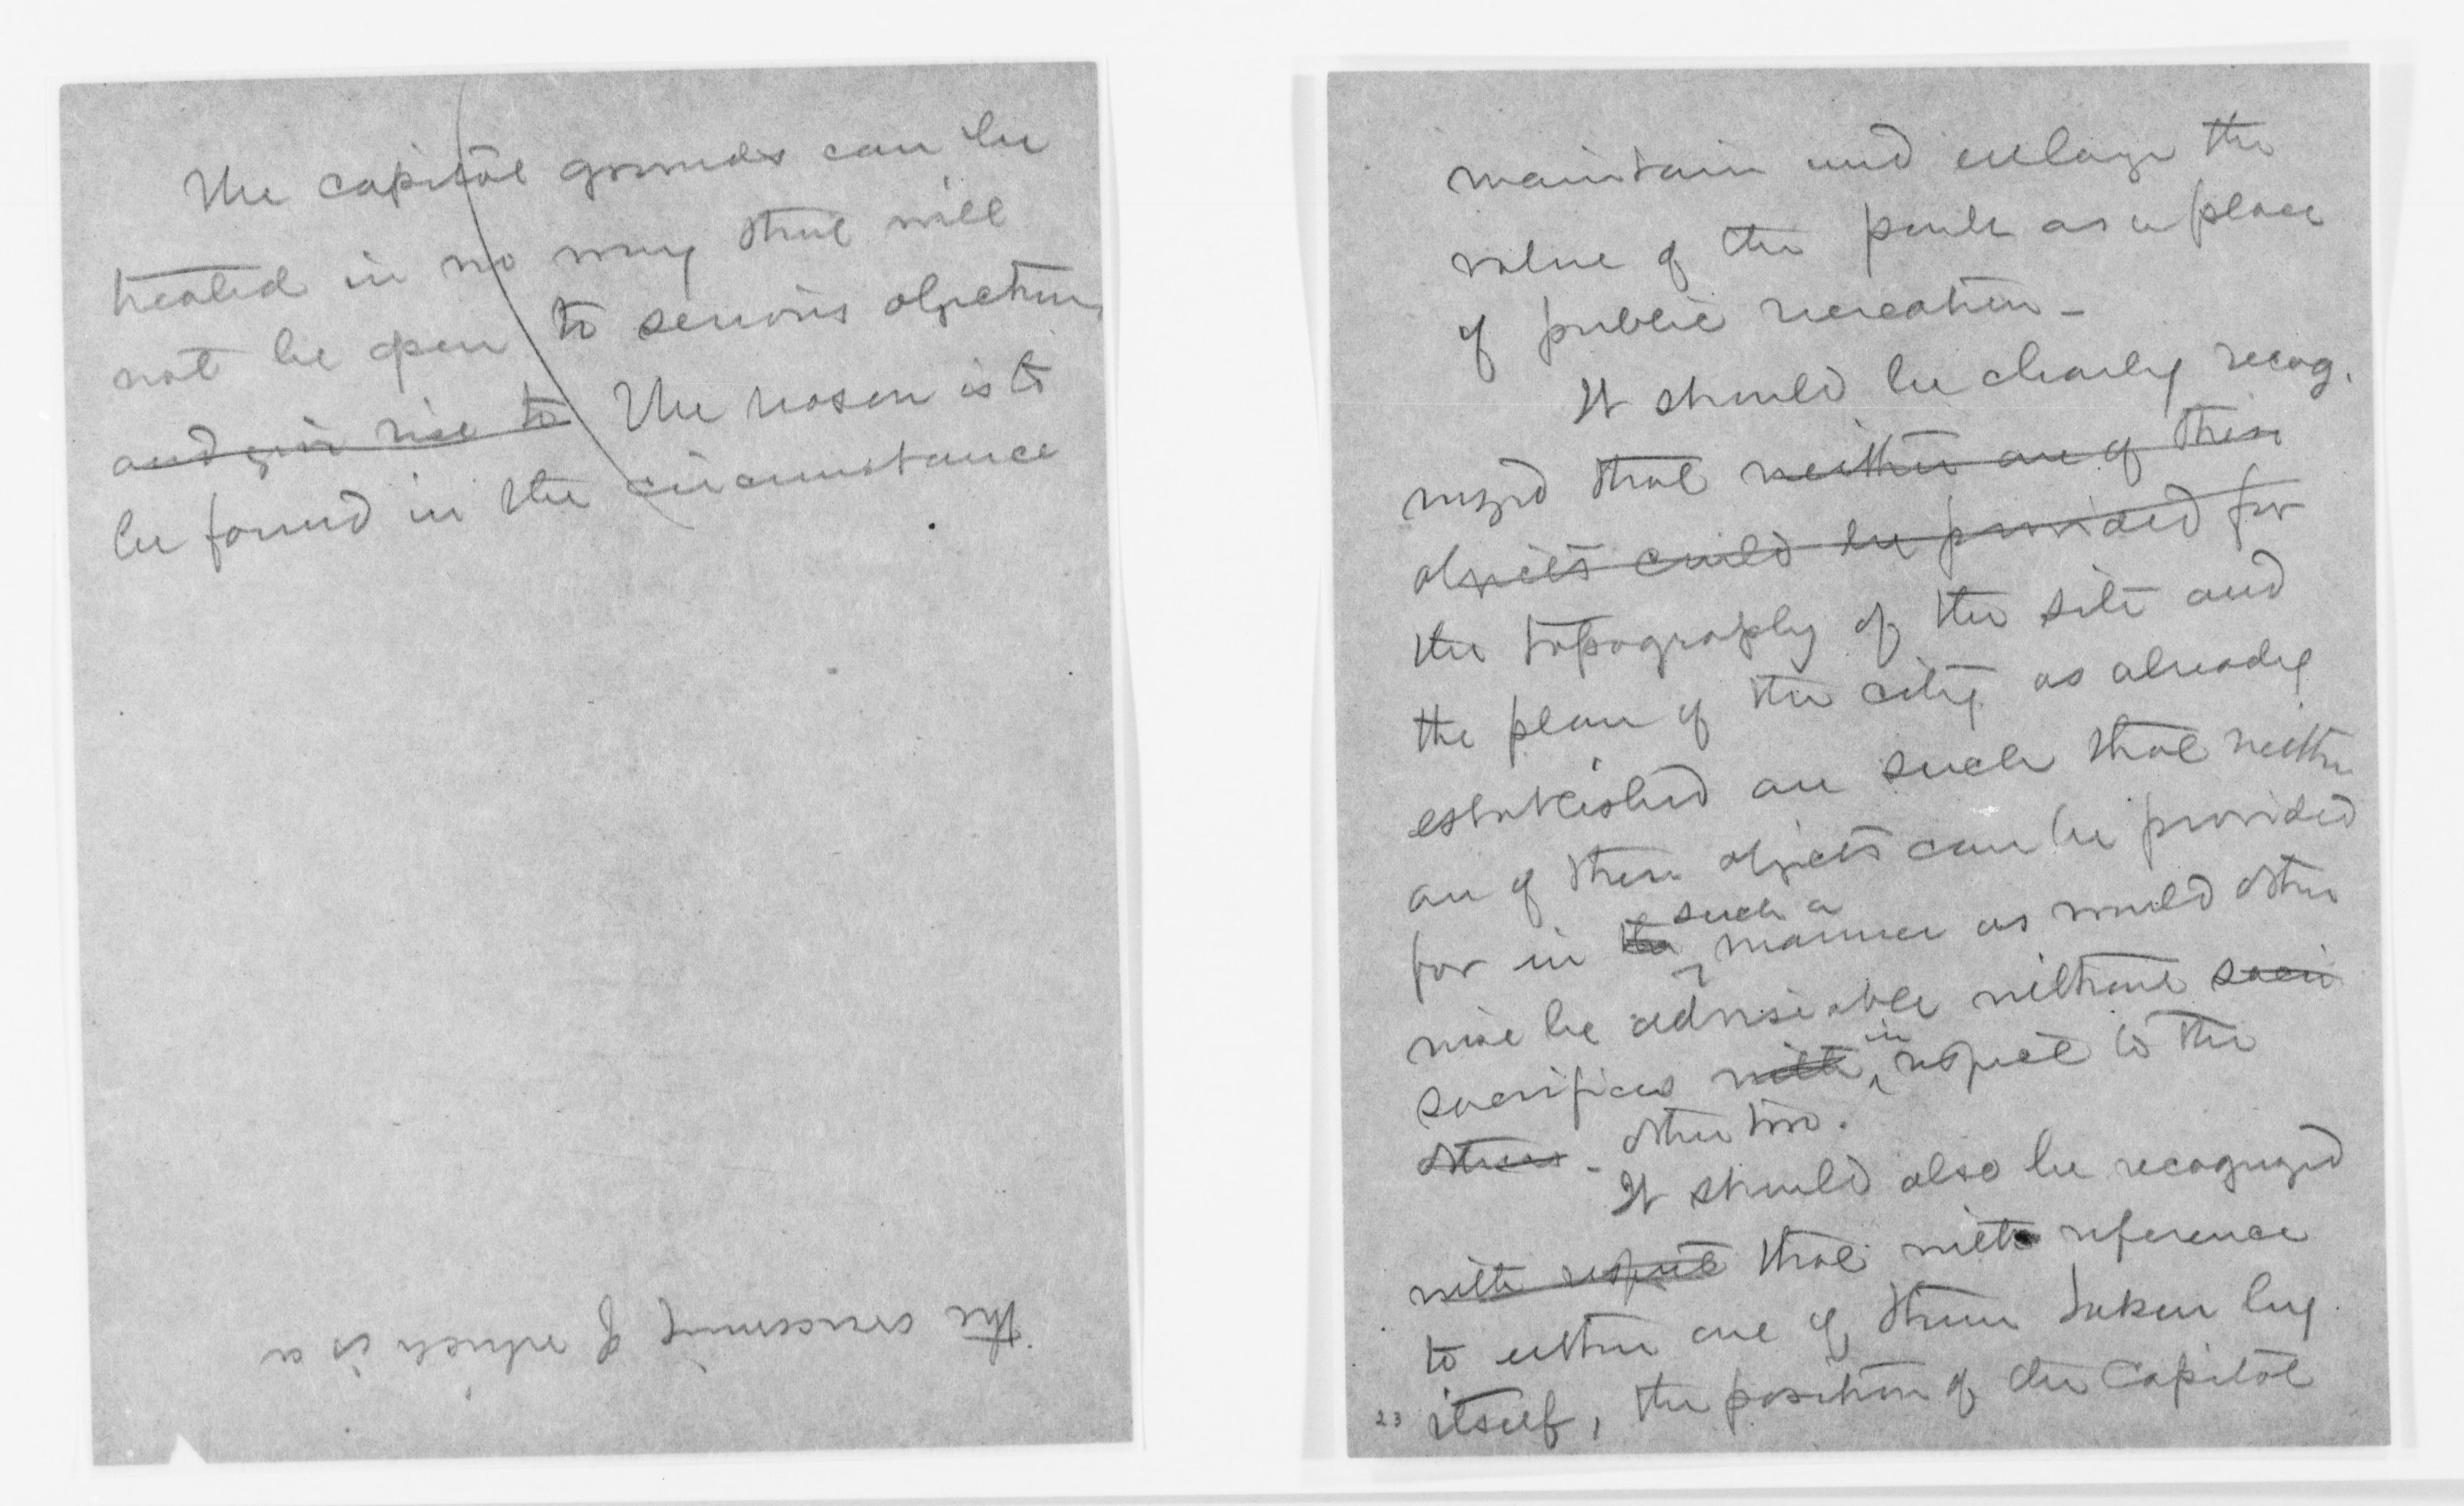 The capitol grounds can be
treated in no way that will
not be open to serious objection,
and give rise to The reason is to
be found in the circumstance
the of which is a
maintain and enlarge the
value of the park as a place
of public recreation -
It should be clearly recog.
nized that neither one of these
objects could be provided for
the topography of the site and
the plan of the city as already
established are such that neither
one of these objects can be provided
for in the such a manner as would other
wise be adviseable without sacri
sacrifices with in respect to the
others - other two.
It should also be recognized
with respect that with reference
to either one of them taken by
itself, the position of the Capitol
23